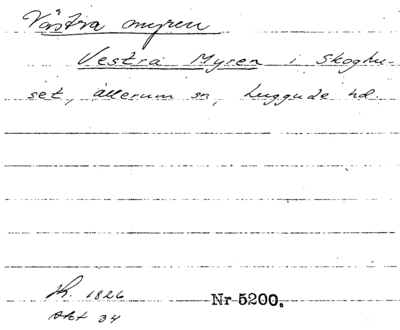 Västra myren
Vestra Myren i Skoghu-
set, Allerum sn, Luggude hd.
Sk. 1826
Akt 34
Nr 5200.